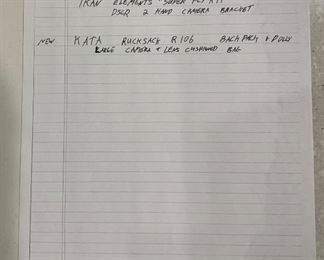 IKAN ELEMENTS "SUPER FLY KIT"
DSLR 2 HAND CAMERA BRACKET
NEW KATA RUCKSACK R106 BACK PACK & DOLLY
LARGE CAMERA & LENS CUSHIONED BAG